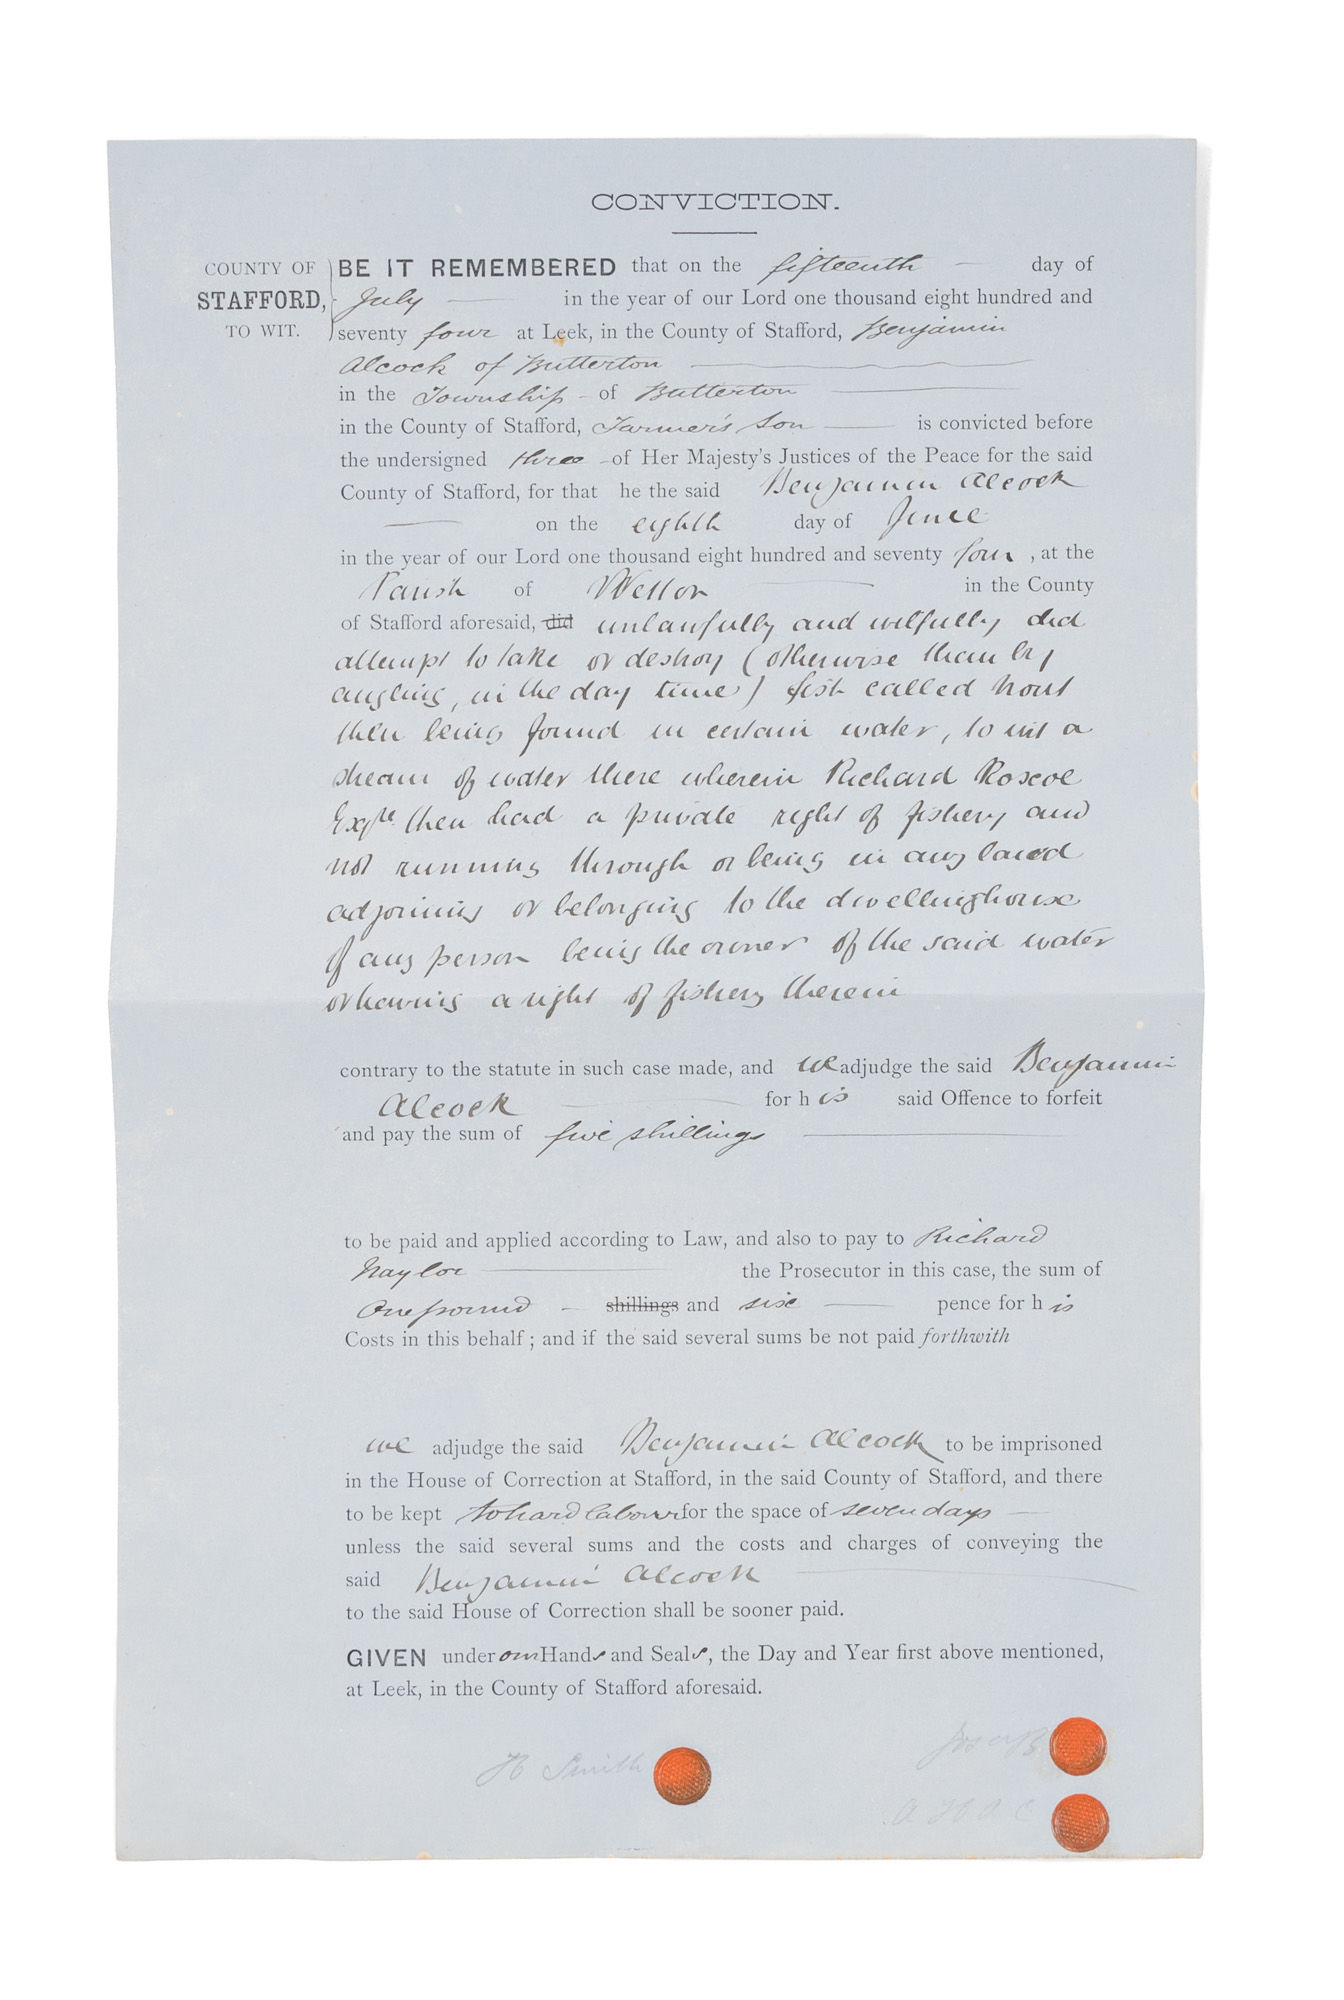 CONVICTION.
COUNTY OF
STAFFORD,
TO WIT.
BE IT REMEMBERED that on the fifteenth day of
July in the year of our Lord one thousand eight hundred and
seventy four at Leek, in the County of Stafford, Benjamin
Alcock of Butterton
in the Township of Butterton
in the County of Stafford, Farmer's Son is convicted before
the undersigned three of Her Majesty's Justices of the Peace for the said
County of Stafford, for that he the said Benjamin Alcock
on the eighth day of June
in the year of our Lord one thousand eight hundred and seventy four, at the
Parish of Wetton in the County
of Stafford aforesaid, did unlawfully and wilfully did
attempt to take or destroy (otherwise than by
angling, in the day time) fish called trout
then being found in certain water, to wit a
stream of water there wherein Richard Roscoe
Esqre then had a private right of fishery and
not running through or being in any land
adjoining or belonging to the dwellinghouse
of any person being the owner of the said water
or having a right of fishery therein
contrary to the statute in such case made, and we adjudge the said Benjamin
Alcock for his said Offence to forfeit
and pay the sum of five shillings
to be paid and applied according to Law, and also to pay to Richard
Naylor the Prosecutor in this case, the sum of
One pound shillings and six pence for his
Costs in this behalf; and if the said several sums be not paid forthwith
we adjudge the said Benjamin Alcock to be imprisoned
in the House of Correction at Stafford, in the said County of Stafford, and there
to be kept to hard labour for the space of seven days
unless the said several sums and the costs and charges of conveying the
said Benjamin Alcock
to the said House of Correction shall be sooner paid.
GIVEN under our Hands and Seals, the Day and Year first above mentioned,
at Leek, in the County of Stafford aforesaid.
Smith